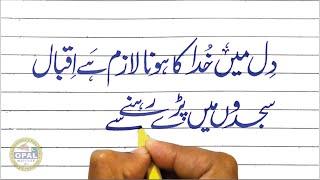 دِل میں خُدا کا ہونا لازم ہَے اِقبال
سجدوں میں پڑے رہنے سے
OPAL